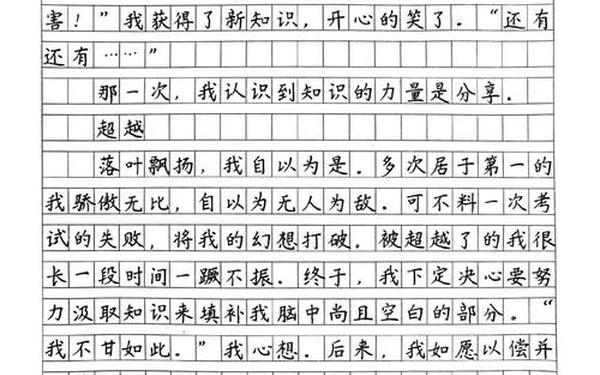 害！”我获得了新知识，开心的笑了．“还有
还有……”
那一次，我认识到知识的力量是分享．
超越
落叶飘扬，我自以为是．多次居于第一的
我骄傲无比，自以为无人为敌．可不料一次考
试的失败，将我的幻想打破．被超越了的我很
长一段时间一蹶不振．终于，我下定决心要努
力汲取知识来填补我脑中尚且空白的部分。“
我不甘如此．”我心想．后来，我如愿以偿并